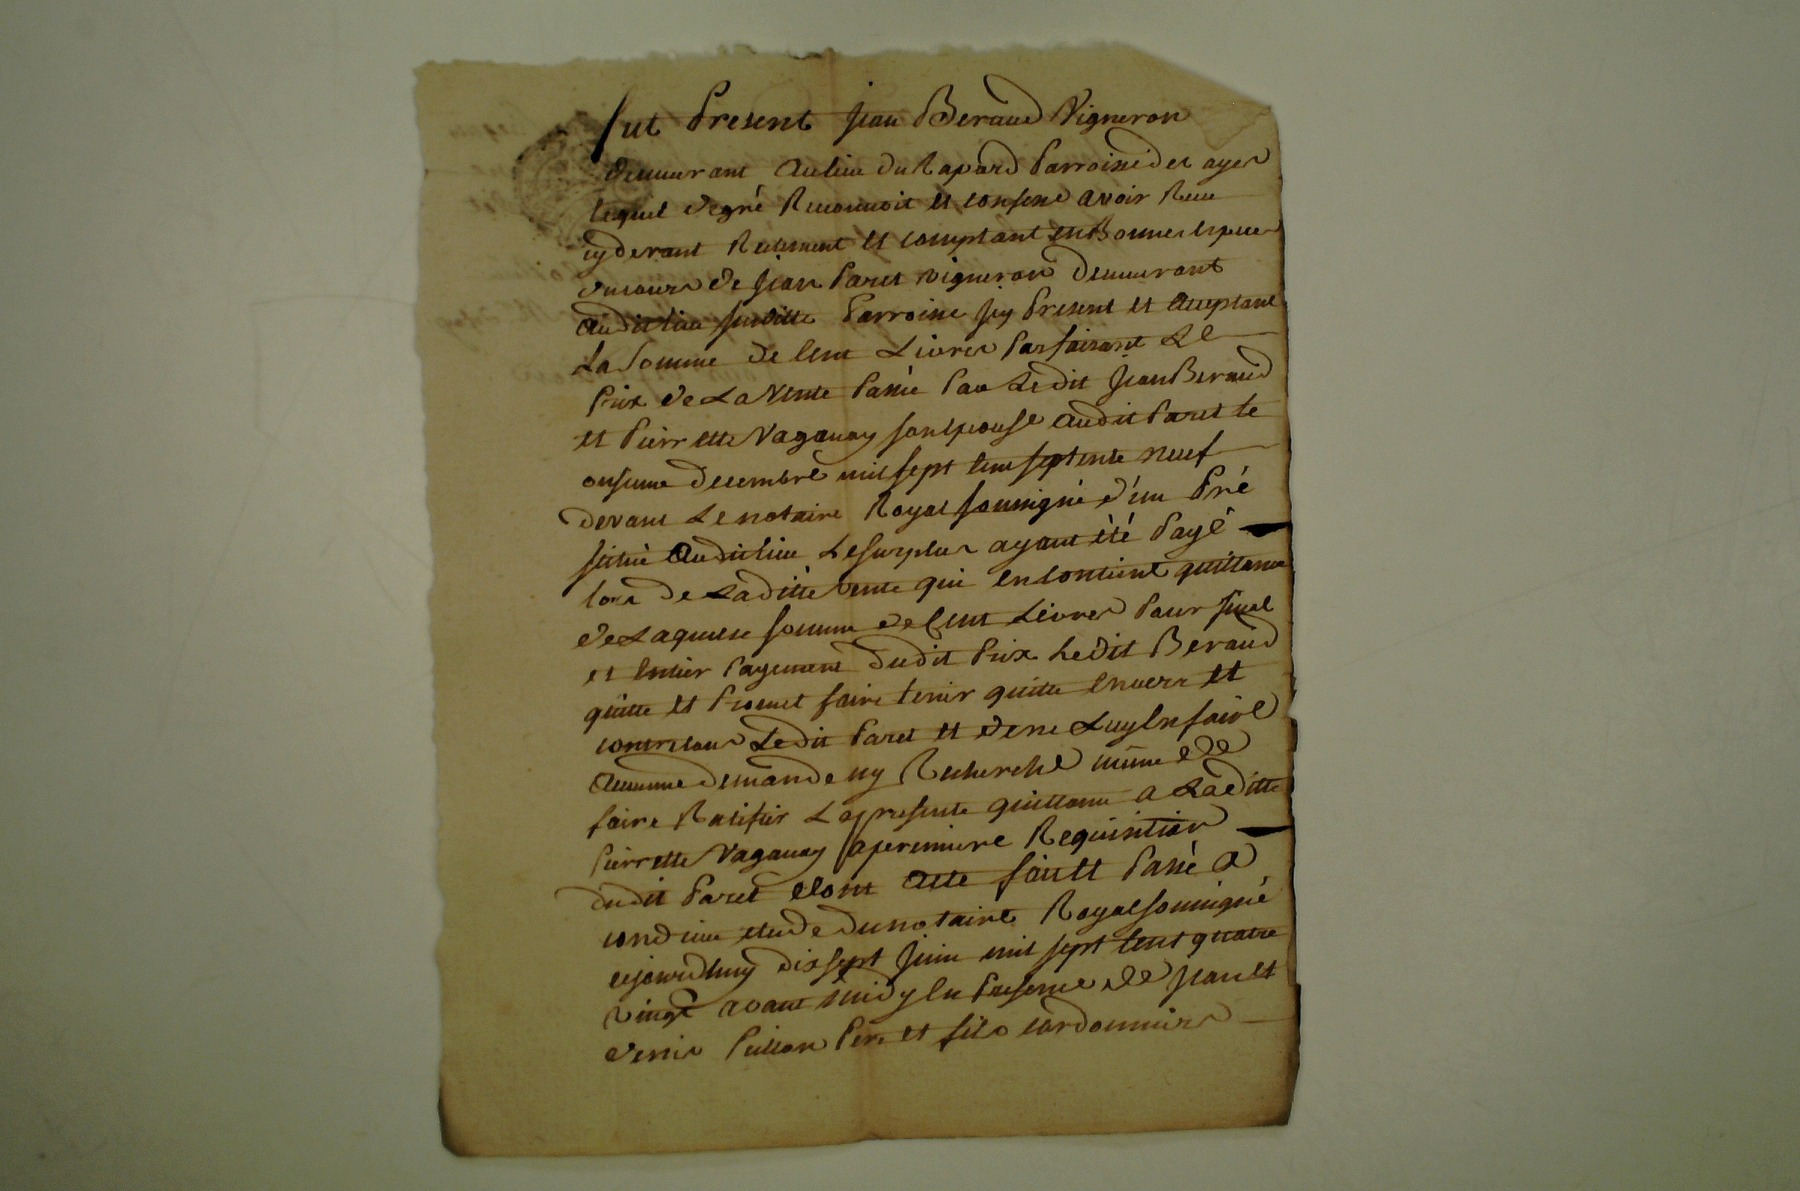 fut Present Jean Beraud Vigneron
demeurant au lieu du Rapard Parroisse des ayes
lequel degré Reconnoit et confesse avoir Receu
cydevant Reellement et comptant en Bonnes especes
du cours de Jean Paret vigneron demeurant
audit lieu susditte Parroisse Icy Present et acceptant
La Somme de Cent Livres Parfaisant Le
Prix de La Vente Passée Par Ledit Jean Beraud
et Pierrette Vaganay son epouse audit Paret le
onsieme decembre mil sept Cent septente neuf
devant Le notaire Royal soussigné d'un Pré
situé audit lieu Le surplus ayant été Payé
lors de Laditte vente qui en contient quittance
de Laquelle somme de Cent Livres Pour final
et Entier Payement dudit Prix Ledit Beraud
quitte et Promet faire tenir quitte Envers et
contre tous Ledit Paret et de ne Luy En faire
aucunne demande ny Recherche même de
faire Ratifier La presente quittance a Laditte
Pierrette Vaganay a premiere Requisition
dudit Paret dont acte fait et Passé a
condrieu etude du notaire Royal soussigné
cejourdhuy dix sept Juin mil sept Cent quatre
vingt avant midy En Presence de Jean et
denis Pere et fils cordonniers